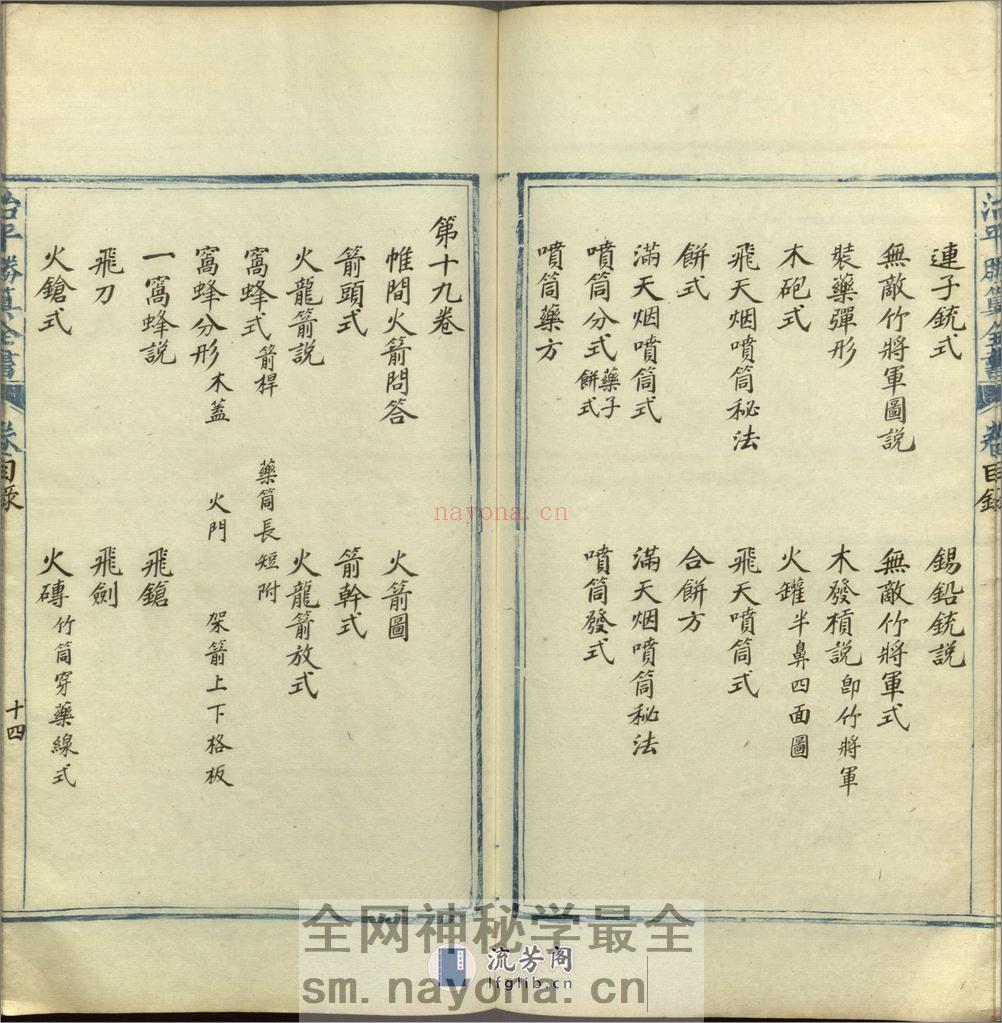 連子銃式 錫鉛銃說
無敵竹將軍圖說 無敵竹將軍式
裝藥彈形 木發槓說 卽竹將軍
木砲式 火罐 半鼻四面圖
飛天烟噴筒秘法 飛天噴筒式
餅式 合餅方
滿天烟噴筒式 滿天烟噴筒秘法
噴筒分式 藥子餅式 噴筒發式
噴筒藥方
目錄
第十九卷
帷間火箭問答 火箭圖
箭頭式 箭幹式
火龍箭說 火龍箭放式
窩蜂式 箭桿 藥筒長短附
窩蜂分形 木蓋 火門 架箭上下格板
一窩蜂說 飛鎗
飛刀 飛劍
火鎗式 火磚 竹筒穿藥線式
治平勝算全書 卷 目錄 十四
nayona.cn
全网神秘学最全
流芳阁
lfglib.cn
sm.nayona.cn